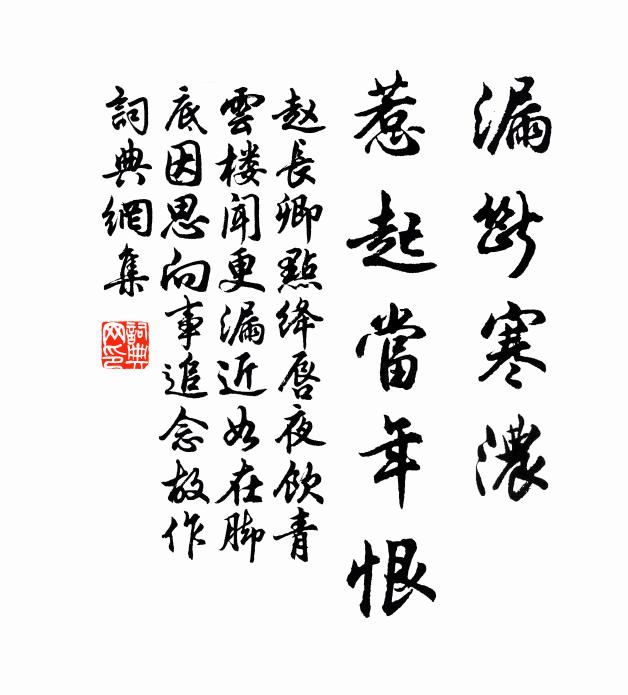 漏斷寒濃
惹起當年恨
赵長卿點绛唇夜飲青
雲楼闻更漏近如在脚
底因思向事追念故作
詞典網集
詞典
网印